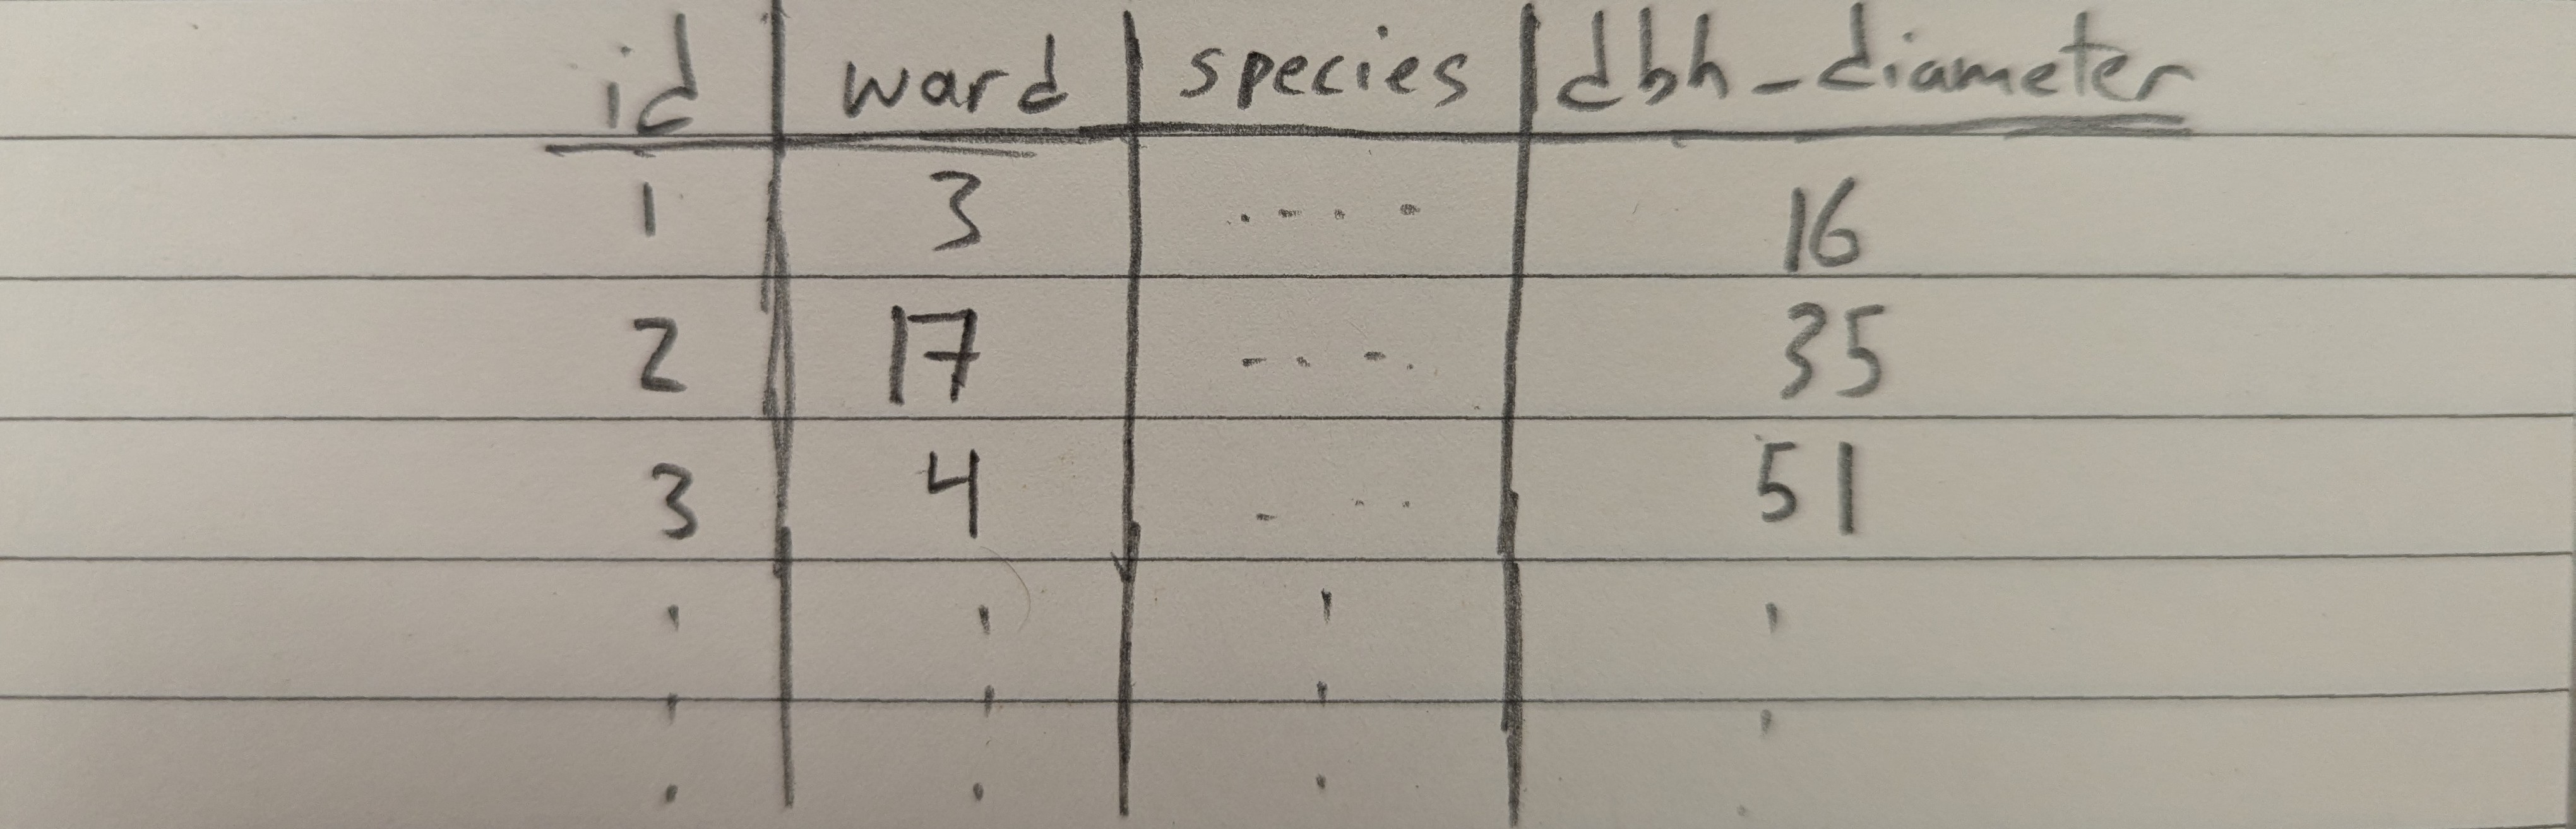 id ward species dbh_diameter
1 3 .... 16
2 17 .... 35
3 4 ... 51
. . . .
. . . .
. . . .